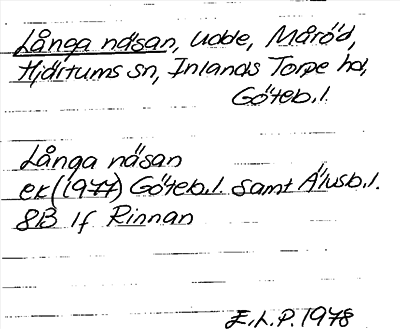 Långa näsan, udde, Måröd,
Hjärtums sn, Inlands Torpe hd,
Göteb.l.
Långa näsan
ek (1977) Göteb.l. samt Älvsb.l.
8B 1f Rinnan
E.L.P. 1978